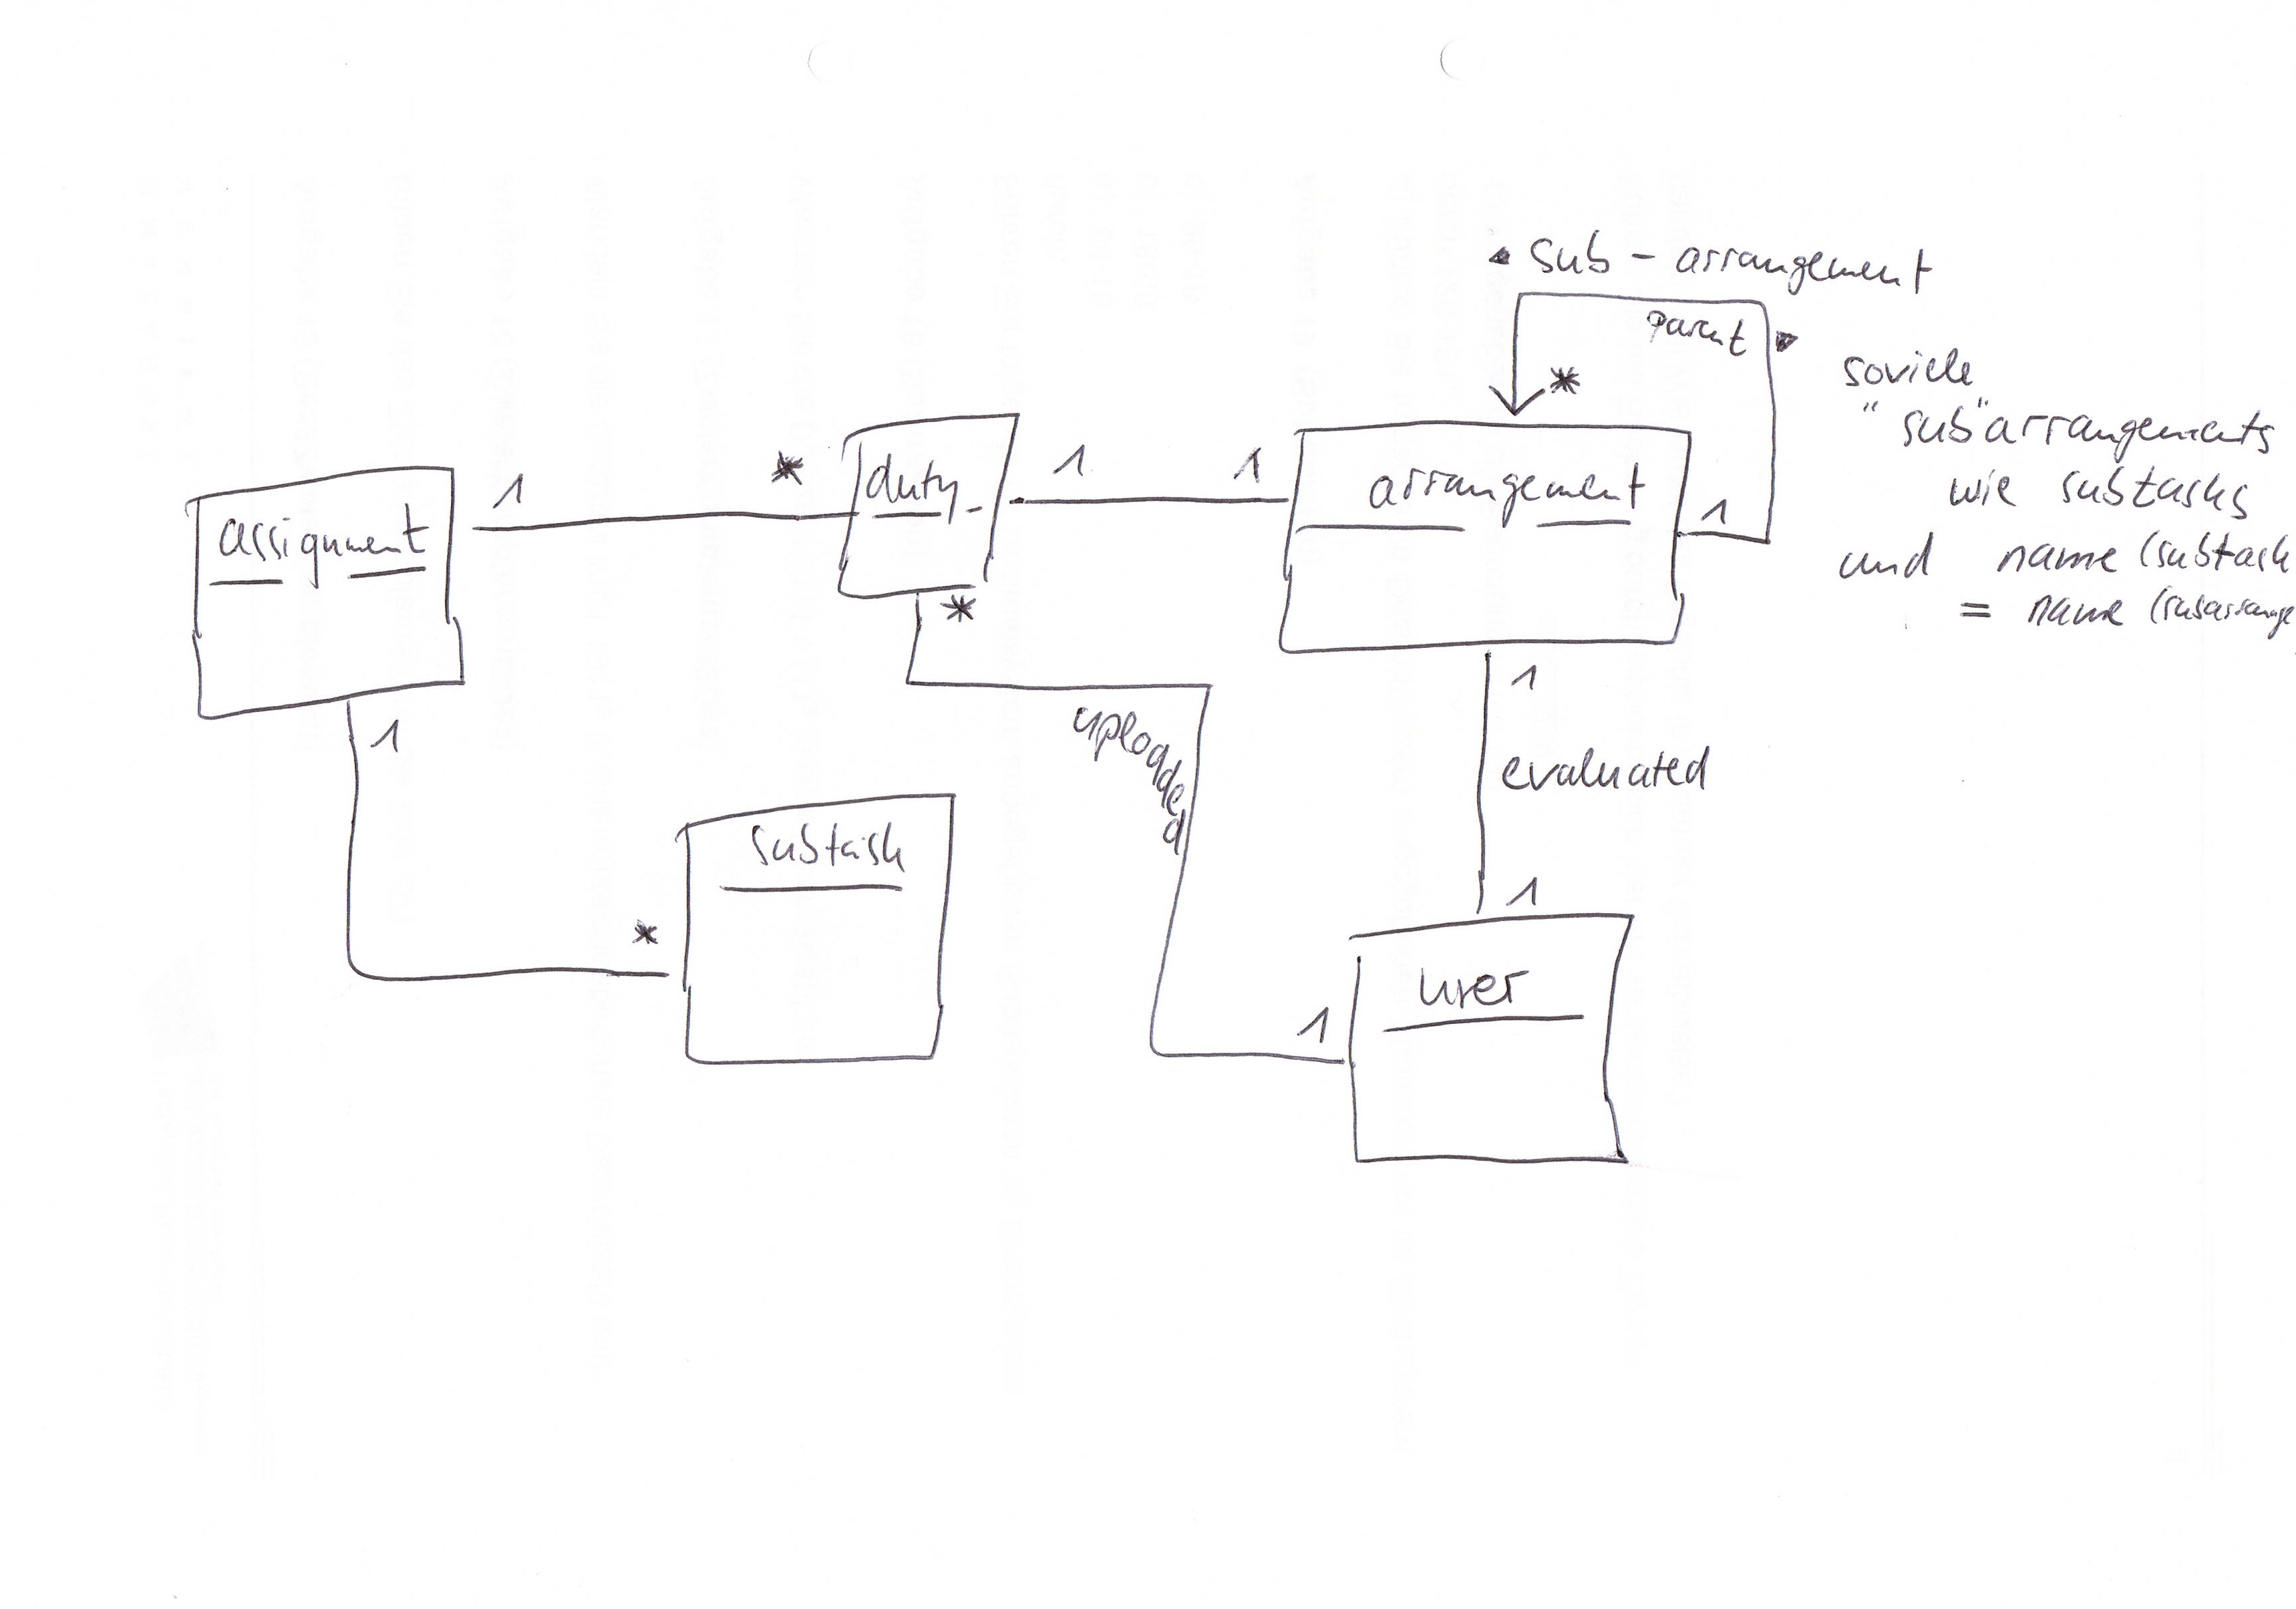 sub - arrangement
parent
*
soviele
"sub" arrangements
wie subtasks
und name (subtask
= name (subarrange
assignment
1
*
duty
1
1
arrangement
1
*
1
uploaded
1
evaluated
1
1
*
subtask
user